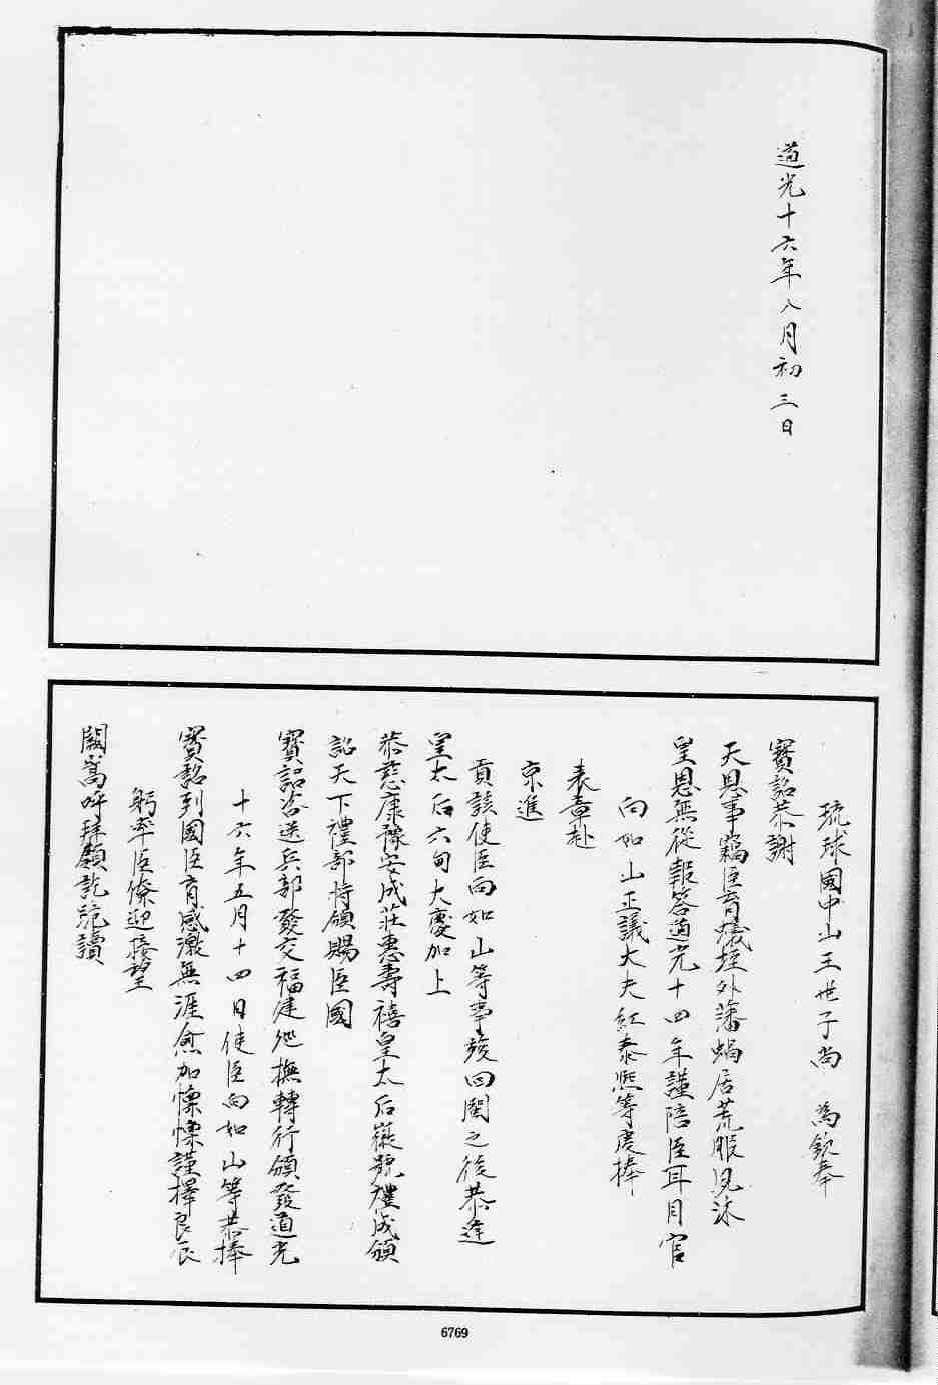 道光十六年八月初三日
琉球國中山王世子尚　為欽奉
寶詔恭謝
天恩事竊臣育蟻垤外藩蝸居荒服夙沐
皇恩無從報答道光十四年謹陪臣耳目官
向如山正議大夫紅泰熙等虔捧
表章赴
京進
貢該使臣向如山等事竣回閩之後恭逢
皇太后六旬大慶加上
恭慈康豫安成莊惠壽禧皇太后徽號禮成頒
詔天下禮部特頒賜臣國
寶詔咨送兵部發交福建巡撫轉行頒發道光
十六年五月十四日使臣向如山等恭捧
寶詔到國臣育感激無涯愈加懍懍謹擇良辰
躬率臣僚迎接望
闕嵩呼拜願訖跪讀
6769